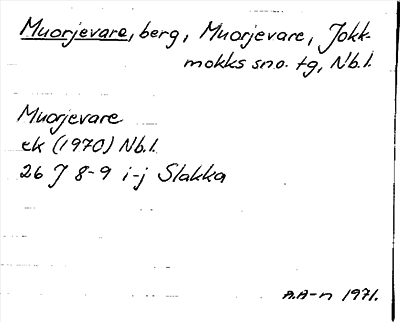 Muorjevare, berg, Muorjevare, Jokk-
mokks sn o. tg, Nb.l.
Muorjevare
ek (1970) Nb.l.
26 J 8-9 i-j Slakka
A.A-n 1971.